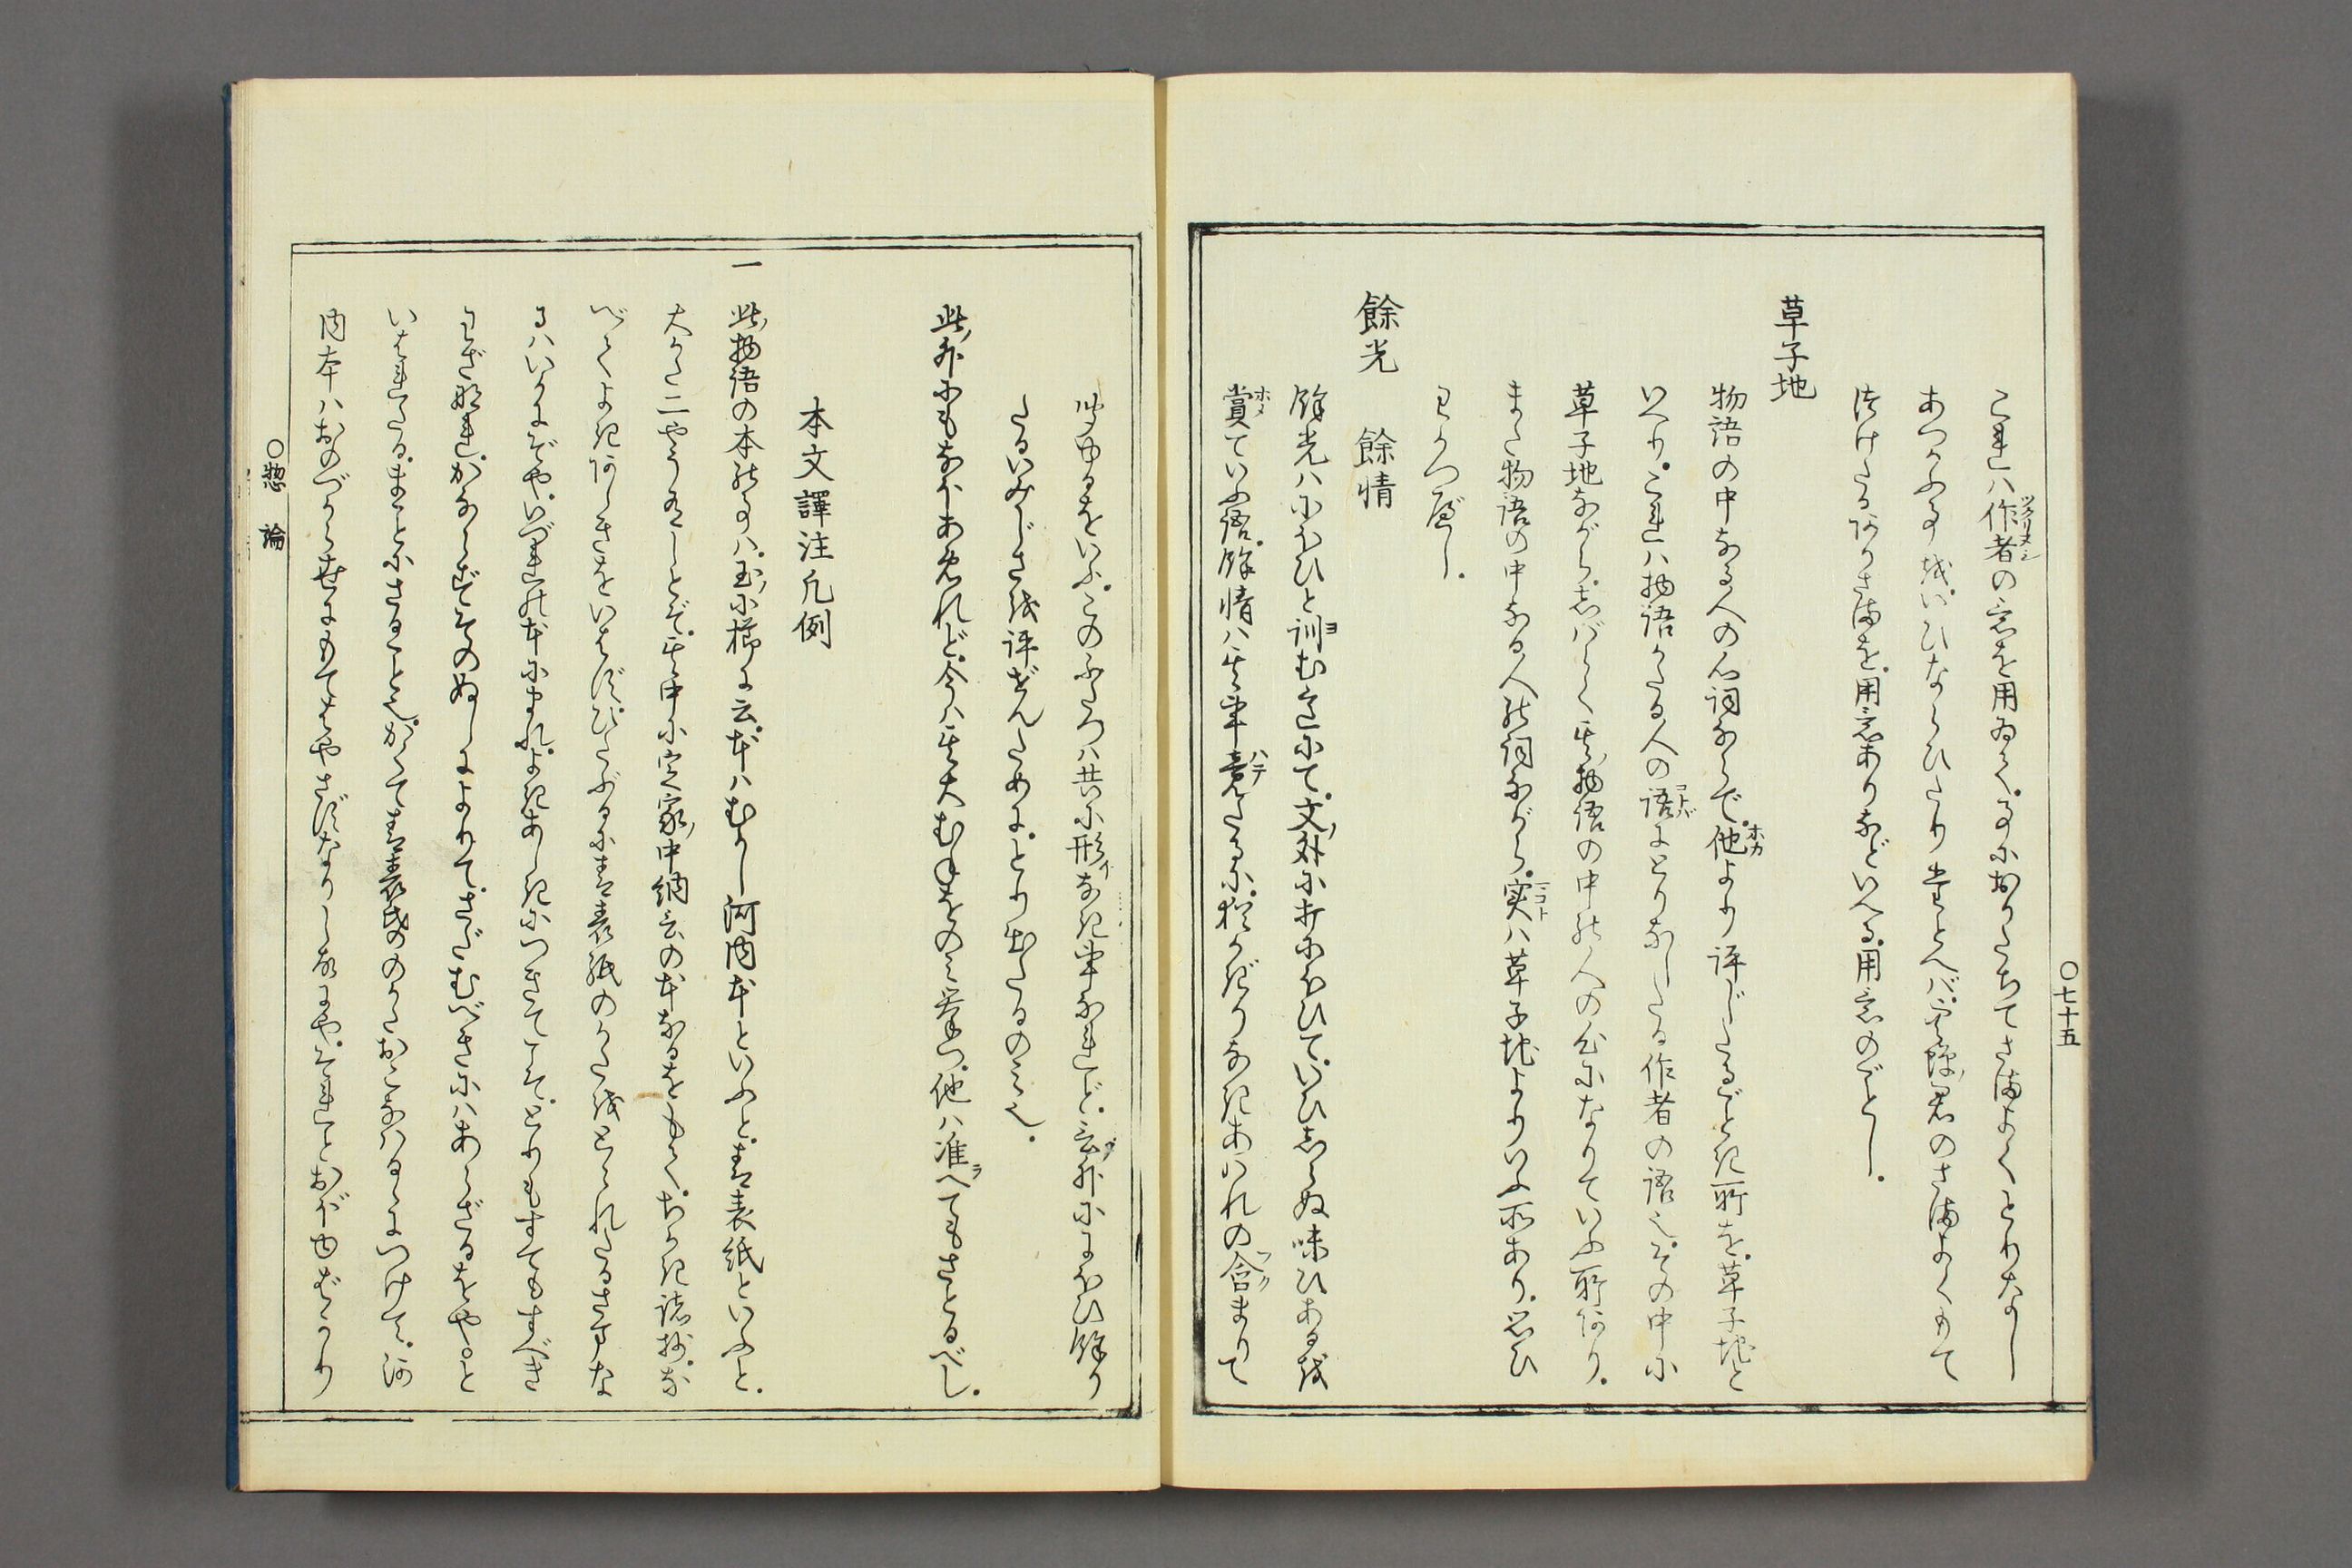 〇七十五
これハ作者の意を用ゐて。事におりたちてさまよくとりなし
あつかふ事をいひならひたり。たとへバ。空蝉ノ君のさまよくもて
つけたるありさまを。用意ありなどいへる用意のごとし。
草子地
物語の中なる人の心詞ならで。他より評じたるごとき所を。草子地と
いへり。これハ物語かたる人の語にとりなしたる作者の語也。その中に
草子地ながら。しばらく其物語の中の人の心になりていふ所あり。
また物語の中なる人の詞ながら。実ハ草子地よりいふ所あり。思ひ
わかつべし。
餘光 餘情
餘光ハにほひと訓む意にて。文ノ外に打にほひて。いひしらぬ味ひあるを
賞ていふ語。餘情ハ其事竟たるに。猶かぎりなきあハれの含まりて
ゆるをいふ。このふたつハ共に形なき事なれど。言外ににほひ餘り
たるいみじさを評ぜんために。とり出たるのミ也。
此ノ外にもなほあめれど。今ハ其大むねをのミ挙つ。他ハ准へてもさとるべし。
本文譯注凡例
一 此ノ物語の本の事ハ。玉ノ小櫛に云。本ハむかし河内本といふと。青表紙といふと。
大かた二やう有しとぞ。其中に定家ノ中納言の本なるをもて。ちかき諸抄。な
べてよきあしきをいはず。ひたぶるに青表紙のかたをとられたるさまな
るハいかにぞや。いづれの本にまれ。よきあしきにつきてこそ。とりもすてもすべき
わざなれ。かならずそのぬしによりて。さだむべきにハあらざるをや。と
いはれたる。まことにさること也。かくて青表紙のかたおこなハるゝにつけて。河
内本ハおのづから世にもてはやさずなりし故にや。それとおぼゆばかり
〇惣論